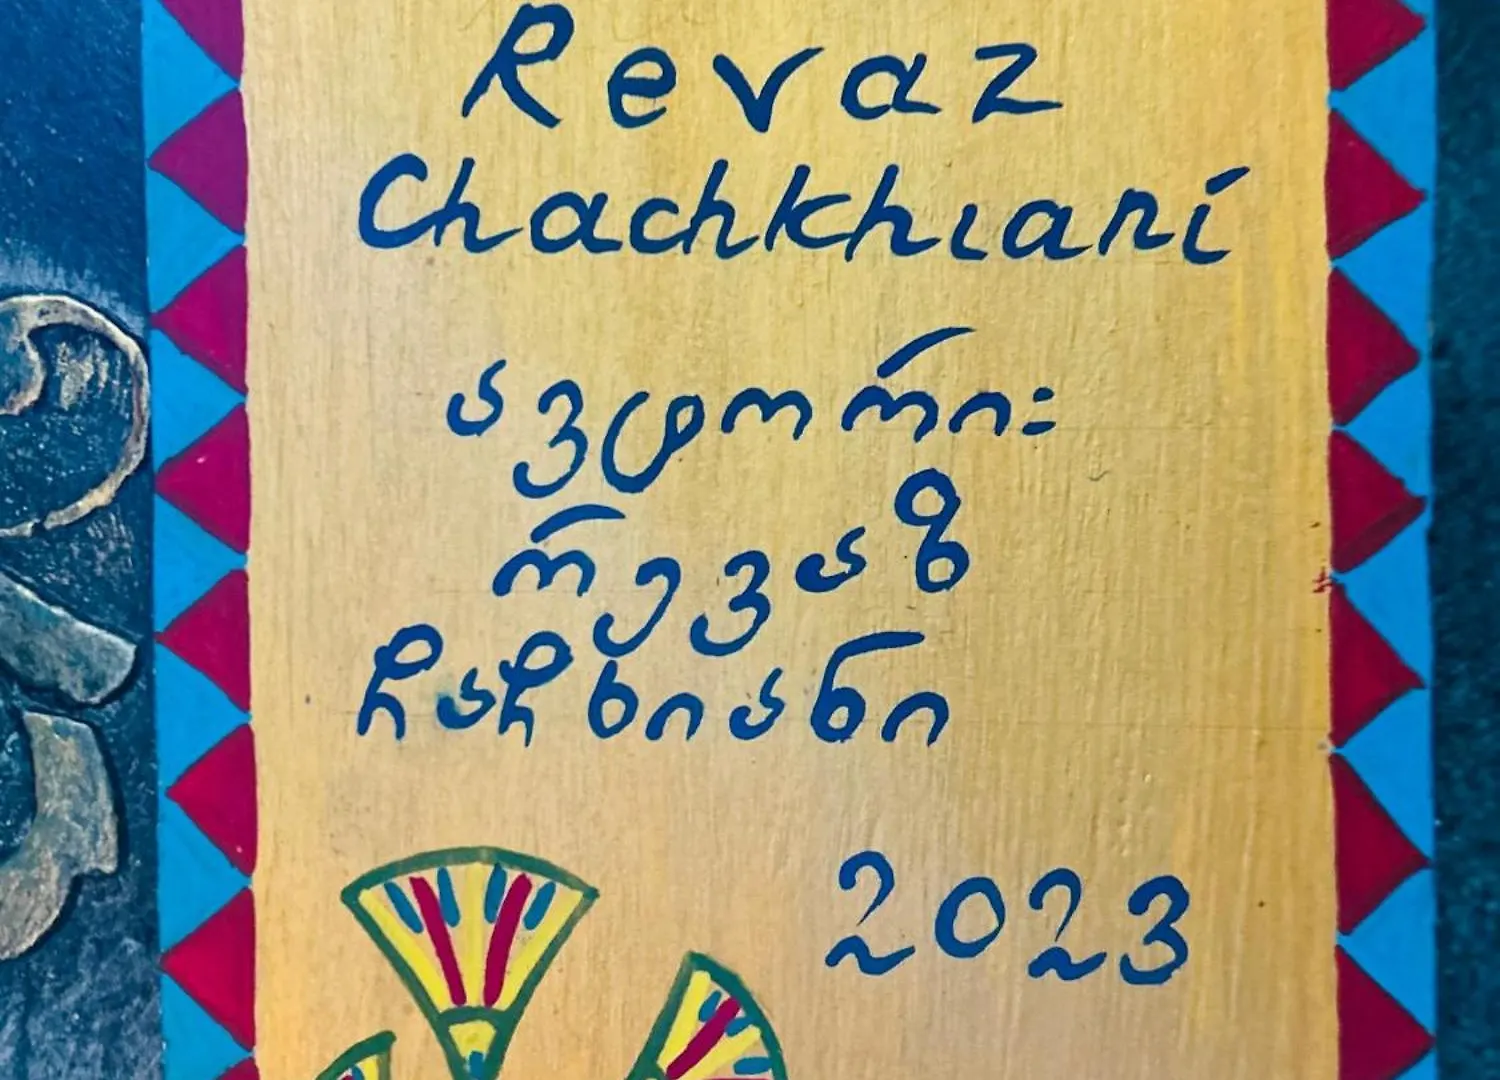 Revaz
Chachkhiani
ავტორი:
რევაზ
ჩაჩხიანი
2023